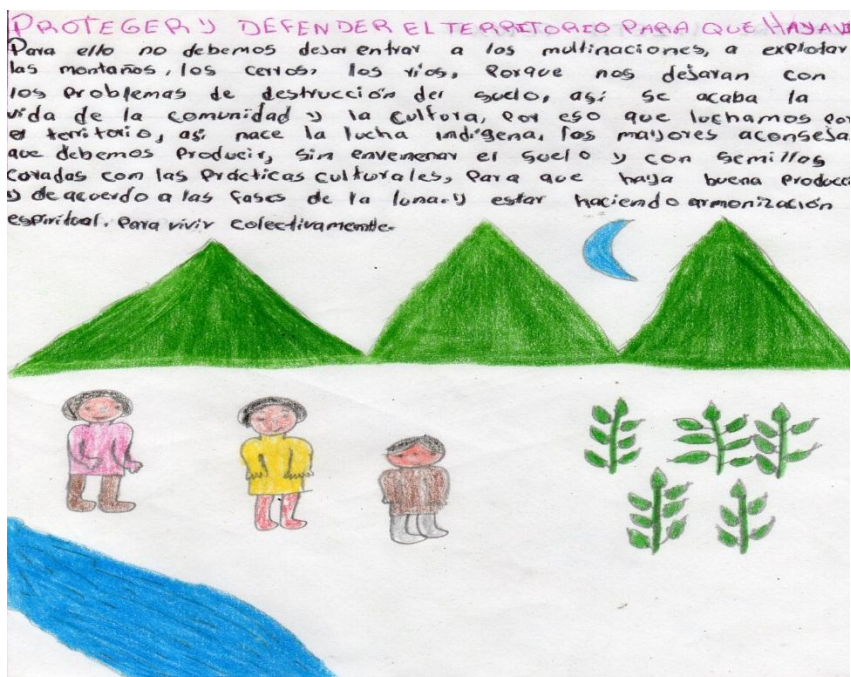 PROTEGER Y DEFENDER EL TERRITORIO PARA QUE HAYA VI
Para ello no debemos dejar entrar a los multinaciones, a explotar
las montañas, los cerros, los ríos, Porque nos dejaran con
los Problemas de destrucción del suelo, así se acaba la
vida de la comunidad y la cultura, por eso que luchamos por
el territorio, así nace la lucha indígena, los mayores aconsejan
que debemos Producir, sin envemenar el suelo y con semillas
coradas con las Prácticas culturales, Para que haya buena Producci
y de acuerdo a las fases de la luna. y estar haciendo armonización
espiritual. Para vivir colectivamente.